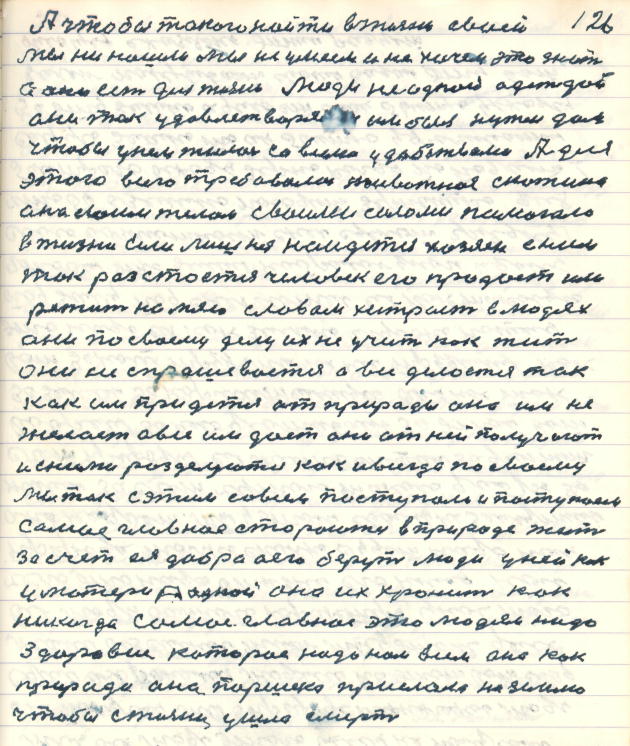 А чтобы такого найти в жизни своей 126
мы ни нашли мы не умеем и не хочем это знат
а они ест для жизнь люди не одной одеждой
они так удовлетворя им был нужен дом
чтобы у нем жилос со всеми удобствами А для
этого всего требовалос животная скотина
она своим телом своими силами помогало
в жизни Если лиш ня найдется хозяен с ним
так разстоется человек его продаст или
режит на мясо словом хитраст в людях
они по своему делу их не учит как жит
они не спрашевается а ви делостя так
как им придется от природы она им не
желает а все им дает они от ней получают
и с ними розделются как и всегда по своему
мы так с этим совсем поступали и поступаем
Самое главное стороютя в природе жит
За счет ея добра его берут люди у ней как
у матери родной она их хронит как
никогда Самое главное это людям надо
Здоровие которое надо нам всем она как
природа она Паршека прислала на землю
чтобы с жизни ушла смерт